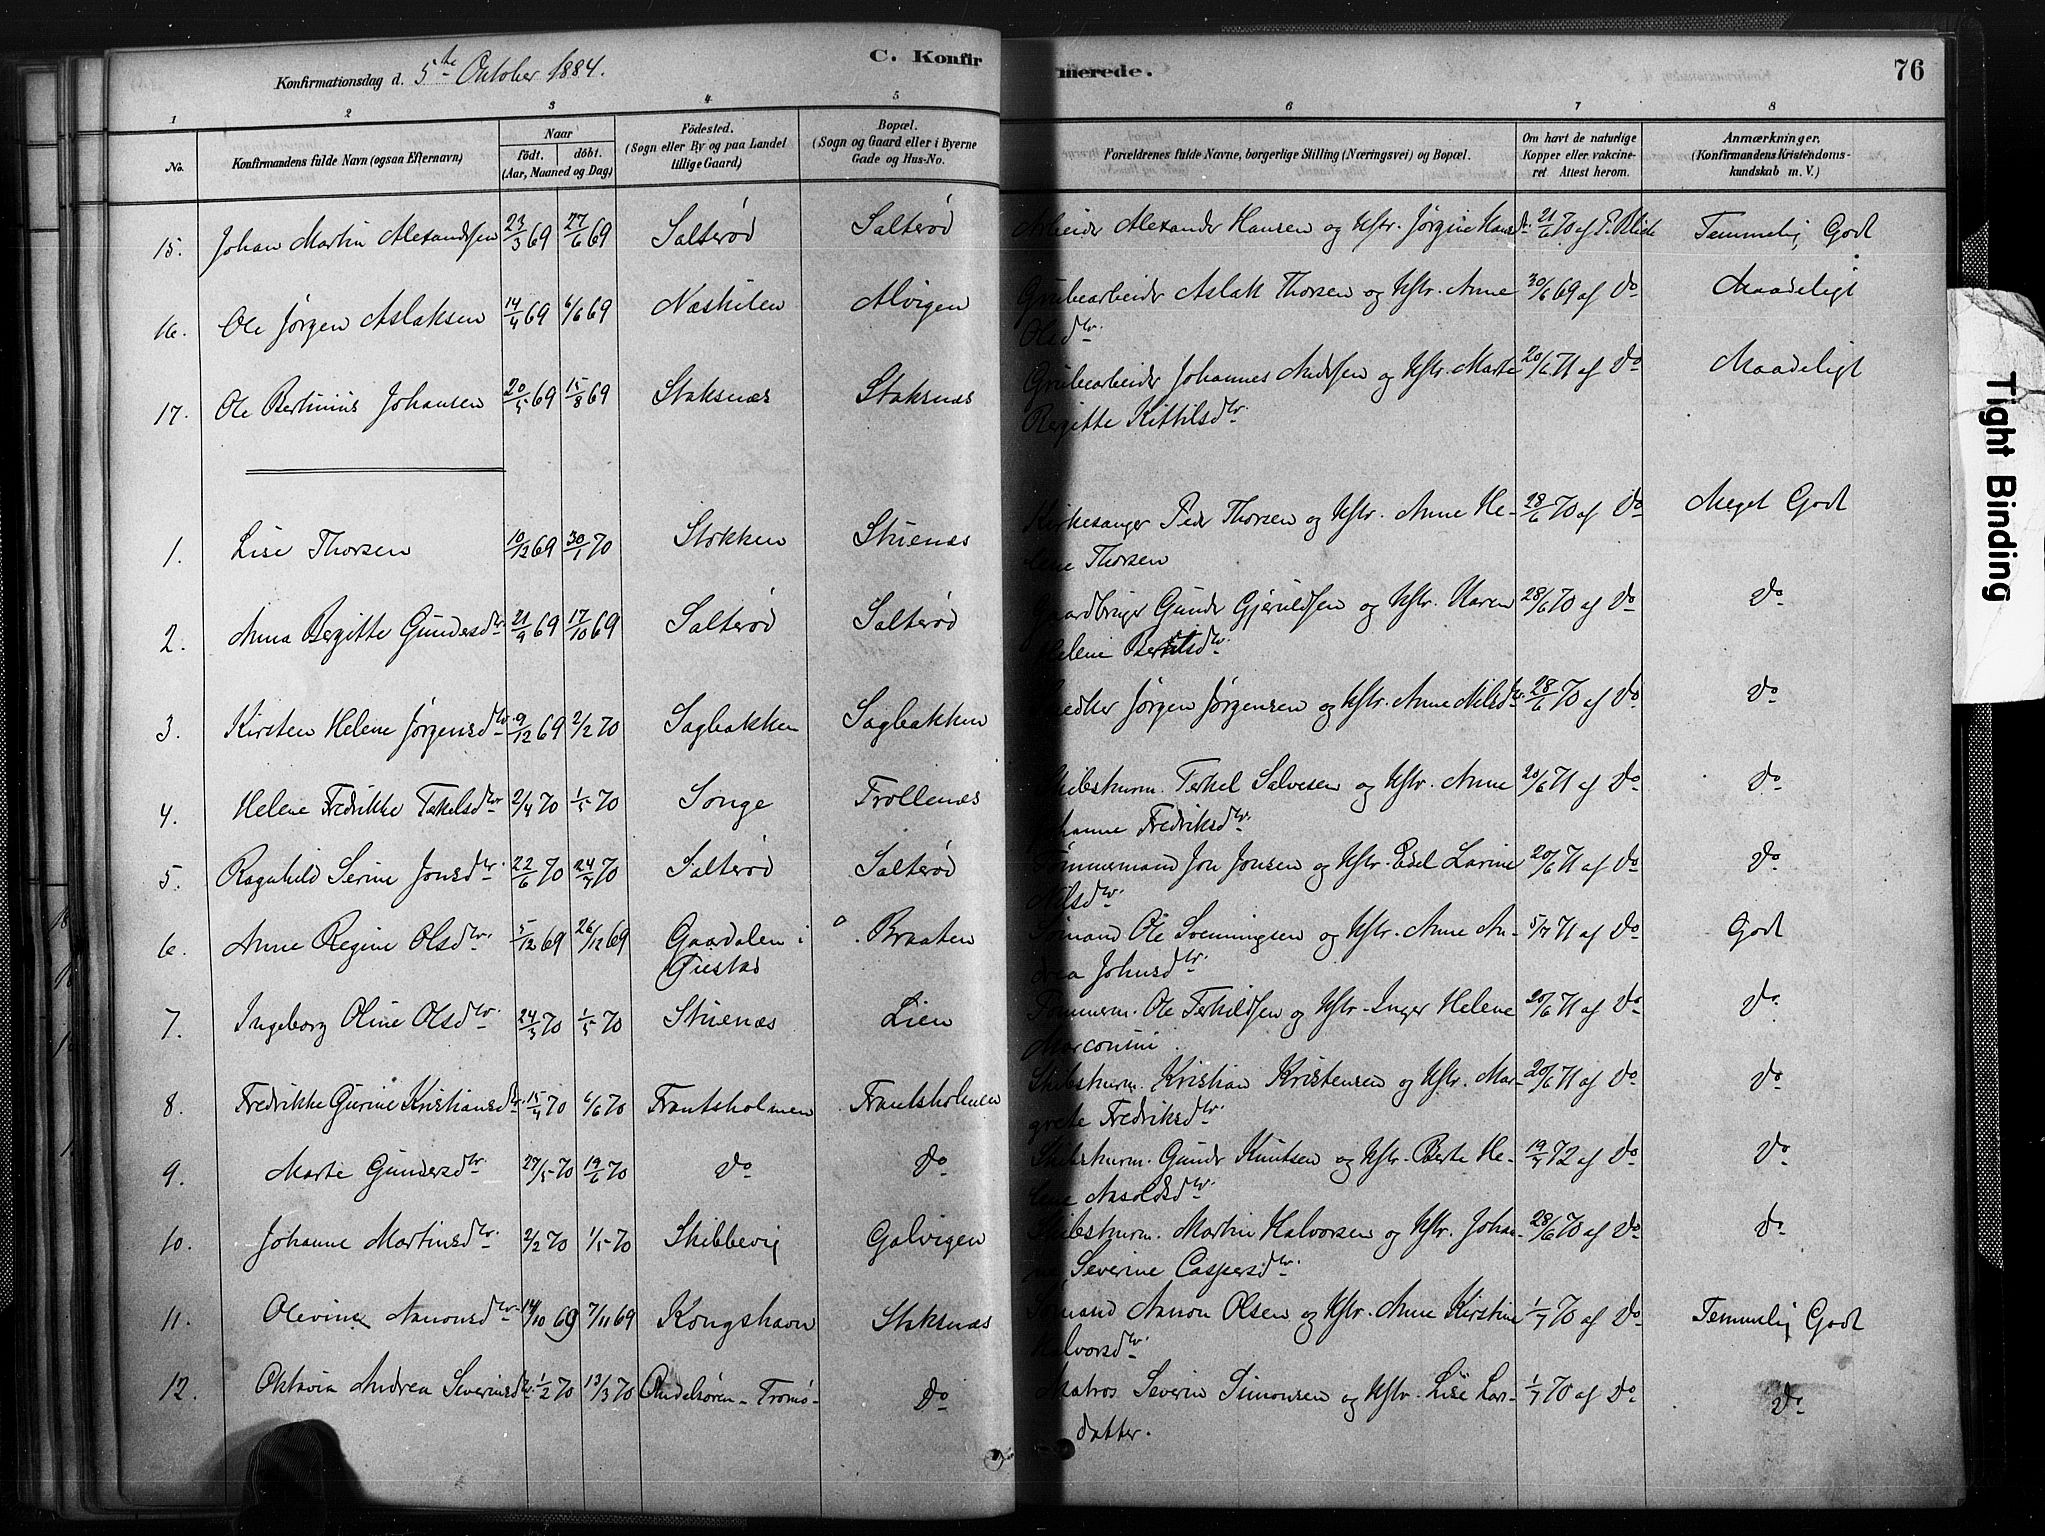 Konfirmationsdag d. 5te Oktober 1884.
C. Konfirmerede.
76
1 2 3 4 5 6 7 8
No.
Konfirmandens fulde Navn (ogsaa Efternavn)
Naar
födt. döbt.
(Aar, Maaned og Dag)
Födested.
(Sogn eller By og paa Landet
tillige Gaard)
Bopæl.
(Sogn og Gaard eller i Byerne
Gade og Hus-No.
Forældrenes fulde Navne, borgerlige Stilling (Næringsvei) og Bopæl.
Om havt de naturlige
Kopper eller vakcine-
ret Attest herom.
Anmærkninger.
(Konfirmandens Kristendoms-
kundskab m. V.)
15. Johan Martin Alexandsen 23/3 69 27/6 69 Salterød Salterød Arbeider Alexander Hansen og Hstr. Jørgine Hansd. 21/6 70 af P. Blide Temmelig Godt
16. Ole Jørgen Aslaksen 14/4 69 6/6 69 Naskilen Alvigen Grubearbeider Aslak Thorsen og Hstr. Anne 30/6 69 af Do Maadeligt
Olsdtr.
17. Ole Bertinius Johansen 20/5 69 15/8 69 Staksnæs Staksnæs Grubearbeider Johannes Andersen og Hstr. Marte 20/6 71 af Do Maadeligt
Regitte Kittilsdtr.
1. Lise Thorsen 10/12 69 30/1 70 Stokken Stuenæs Kirkesanger Peder Thorsen og Hstr. Anne He- 28/6 70 af Do Meget Godt
lene Thorsen
2. Anna Bergitte Gundersdtr. 21/9 69 17/10 69 Salterød Salterød Gaardbruger Gunder Gjeruldsen og Hstr. Karen 28/6 70 af Do Do
Helene Bertilsdtr.
3. Kirsten Helene Jørgensdtr. 9/12 69 2/2 70 Sagbakken Sagbakken Snedker Jørgen Jørgensen og Hstr. Anne Nilsdtr. 28/6 70 af Do Do
4. Helene Fredrikke Terkelsdtr 2/4 70 1/5 70 Songe Trollenæs Skibsturm. Terkel Salvesen og Hstr. Anne 20/6 71 af Do Do
Johanne Fredriksdtr.
5. Ragnhild Serine Jonsdtr. 22/6 70 24/7 70 Salterød Salterød Tømmermand Jon Jonsen og Hstr. Edel Larine 20/6 71 af Do Do
Nilsdtr.
6. Anne Regine Olsdtr. 5/12 69 26/12 69 Gaardalen i Braaten Sømand Ole Svenningsen og Hstr. Anne An- 5/7 71 af Do Godt
Giestad drea Johnsdtr.
7. Ingeborg Oline Olsdtr. 24/3 70 1/5 70 Stuenæs Lien Tømmerm. Ole Terkildsen og Hstr. Inger Helene 20/6 71 af Do Do
Marconini
8. Fredrikke Gurine Kristiansdtr. 15/4 70 6/6 70 Frantsholmen Frantsholmen Skibsturm. Kristian Kristensen og Hstr. Mar- 20/6 71 af Do Do
grete Fredriksdtr.
9. Marte Gundersdtr. 27/5 70 19/6 70 Do Do Skibsturm. Gunder Knutsen og Hstr. Berte He- 19/7 72 af Do Do
lene Aasoldsdtr.
10. Johanne Martinsdtr. 2/2 70 1/5 70 Skibbevig Galvigen Skibsturm. Martin Halvorsen og Hstr. Johan- 28/6 70 af Do Do
ne Severine Caspersdtr.
11. Olevine Aanonsdtr. 14/10 69 7/11 69 Kongshavn Staksnæs Sømand Aanon Olsen og Hstr. Anne Kirstine 1/7 70 af Do Temmelig Godt
Halvorsdtr.
12. Oktavia Andrea Severinsdtr. 1/2 70 13/3 70 Tromø- Do Matros Severin Simonsen og Hstr. Lise Lars- 1/7 70 af Do Do
datter.
Tight Binding